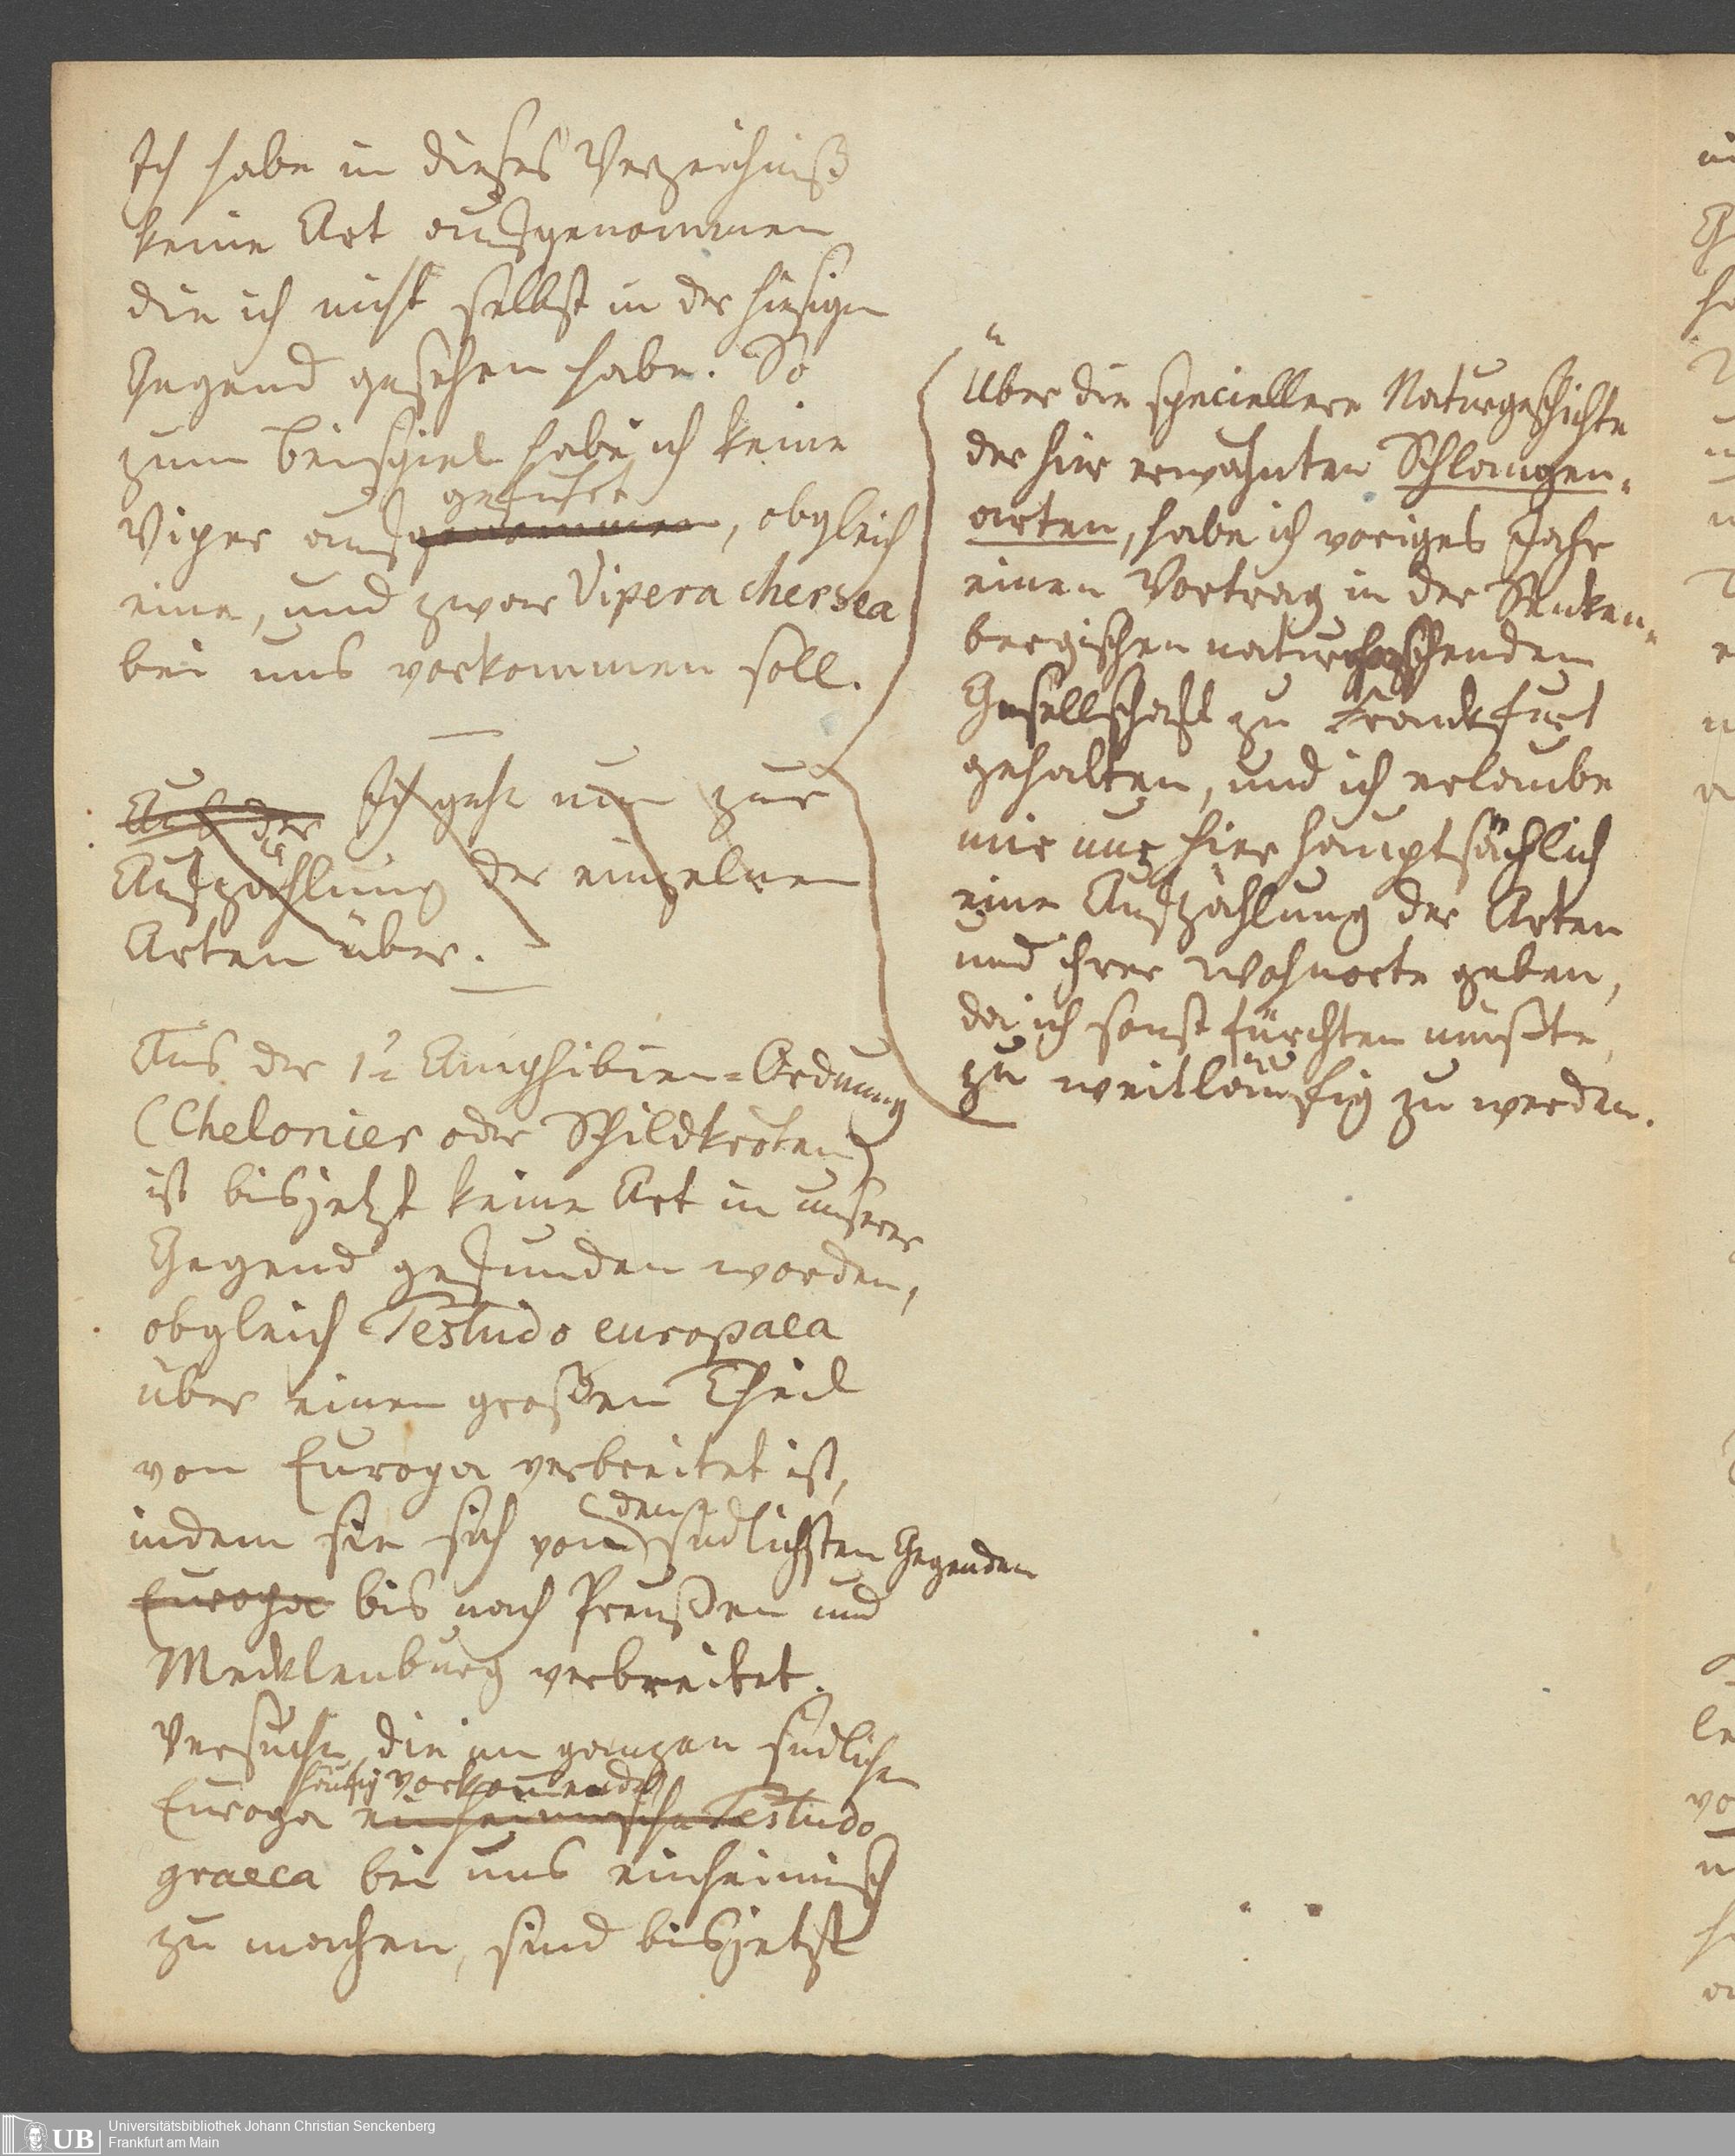 Ich habe in dieses Verzeichniß
keine Art aufgenommen
die ich nicht selbst in der hiesigen
Gegend gesehen habe. So
zum Beispiel habe ich keine
geführt
Viper aufgenommen, obgleich
eine, und zwar Vipera chersea
bei uns vorkommen soll.
Auf der Ich gehe nun zur
Aufzählung der einzelnen
Arten über.
Aus der 1n Amphibien=Ordnung
(Chelonier oder Schildkröten)
ist bisjetzt keine Art in unserer
Gegend gefunden worden,
obgleich Testudo europaea
über einen großen Theil
von Europa verbreitet ist,
den
indem sie sich von südlichsten Gegenden
Europa bis nach Preußen und
Mecklenburg verbreitet.
Versuche, die im ganzen südlichen
häufig vorkommende
Europa einheimische Testudo
graeca bei uns einheimisch
zu machen, sind bisjetzt
Über die speciellere Naturgeschichte
der hier erwähnten Schlangen-
arten, habe ich voriges Jahr
einen Vortrag in der Senken-
bergischen naturforschenden
Gesellschaft zu Frankfurt
gehalten, und ich erlaube
mir nur hier hauptsächlich
eine Aufzählung der Arten
und ihrer Wohnorte geben,
da ich sonst fürchten müßte,
zu weitläufig zu werden.
Universitätsbibliothek Johann Christian Senckenberg
Frankfurt am Main
UB